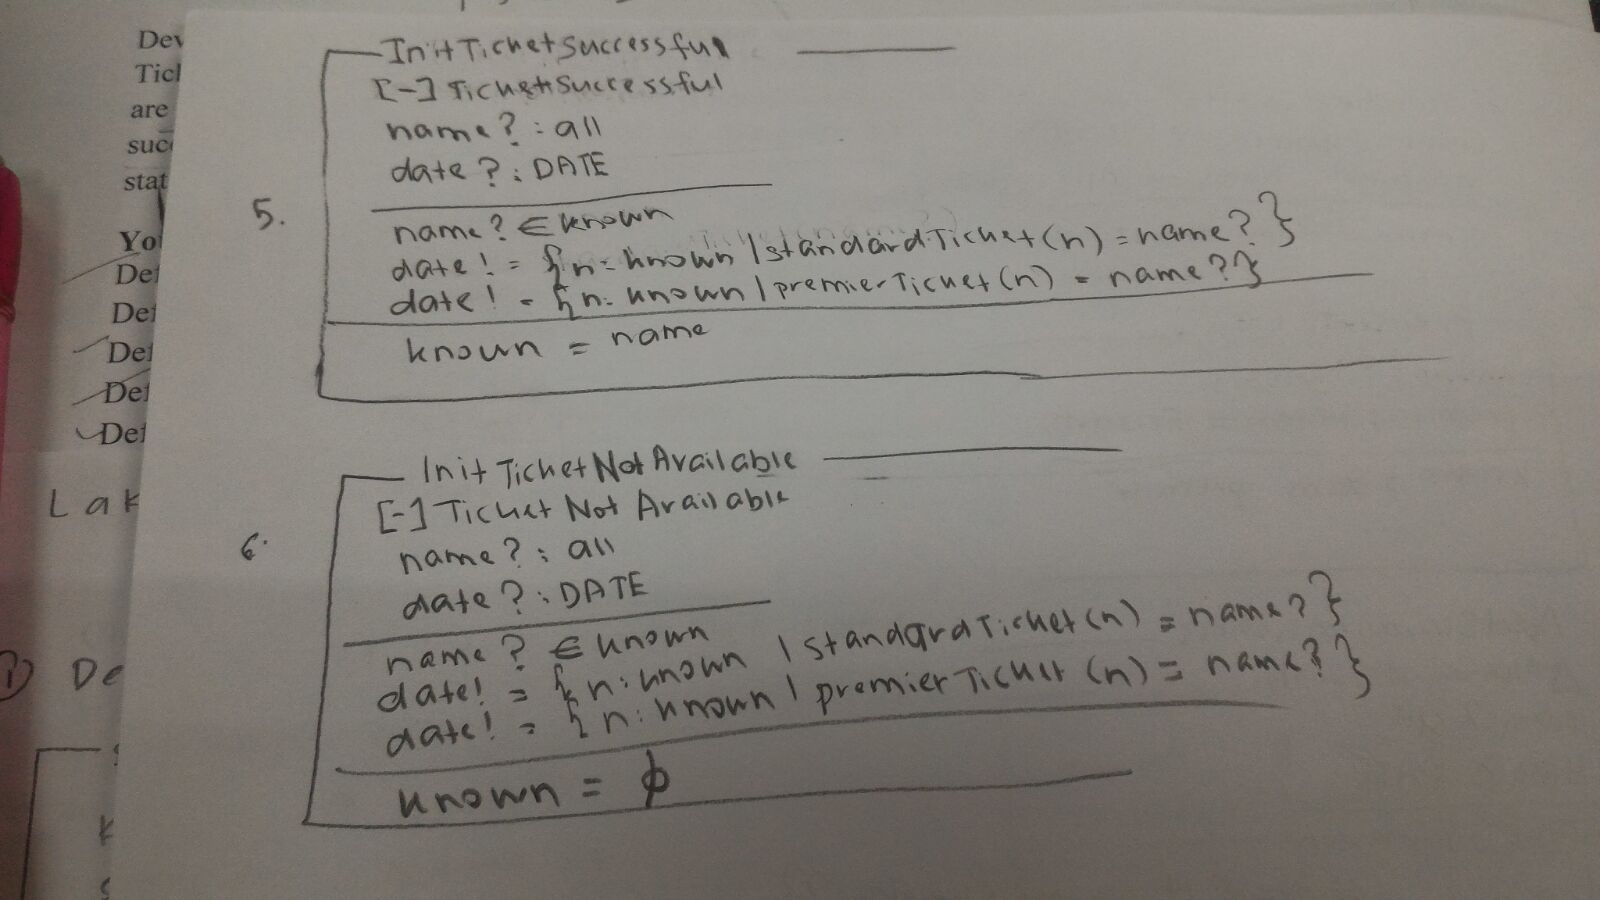 Dev
Ticl
are
suc
stat
Yo
Def
Def
Def
Def
Def
Lak
1) De
K
5.
InitTicketSuccessful
[-] TicketSuccessful
name? : all
date? : DATE
name? ∈ known
date! = {n: known | standardTicket(n) = name?}
date! = {n: known | premierTicket(n) = name?}
known = name
6.
InitTicketNotAvailable
[-] TicketNotAvailable
name? : all
date? : DATE
name? ∈ known
date! = {n: known | standardTicket(n) = name?}
date! = {n: known | premierTicket(n) = name?}
known = ϕ